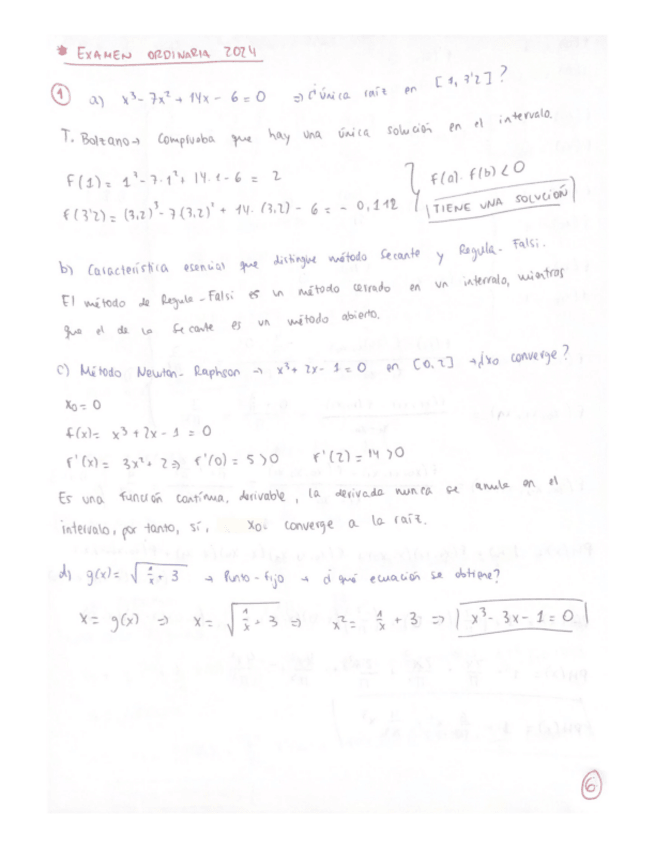 * EXAMEN ORDINARIA 2024
① a) x³ - 7x² + 14x - 6 = 0 ⇒ ¿única raíz en [1, 3'2]?
T. Bolzano → Comprueba que hay una única solución en el intervalo.
f(1) = 1³ - 7·1² + 14·1 - 6 = 2
f(3'2) = (3,2)³ - 7(3,2)² + 14·(3,2) - 6 = - 0,112
f(a)·f(b) < 0
TIENE UNA SOLUCIÓN
b) Característica esencial que distingue método Secante y Regula-Falsi.
El método de Regula-Falsi es un método cerrado en un intervalo, mientras
que el de la Secante es un método abierto.
c) Método Newton-Raphson → x³ + 2x - 1 = 0 en [0,2] → ¿x0 converge?
x0 = 0
f(x) = x³ + 2x - 1 = 0
f'(x) = 3x² + 2 ⇒ f'(0) = 5 > 0 f'(2) = 14 > 0
Es una función continua, derivable, la derivada nunca se anula en el
intervalo, por tanto, sí, x0 converge a la raíz.
d) g(x) = √(1/x + 3) → Punto-fijo → ¿qué ecuación se obtiene?
x = g(x) ⇒ x = √(1/x + 3) ⇒ x² = 1/x + 3 ⇒ x³ - 3x - 1 = 0
6